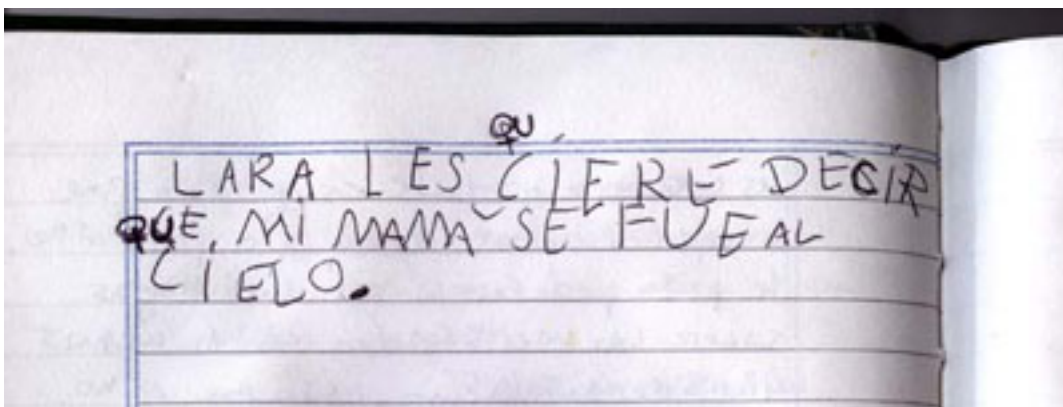 QU
LARA LES CIERE DECIR
QUE, MI MAMÁ SE FUE AL
CIELO.